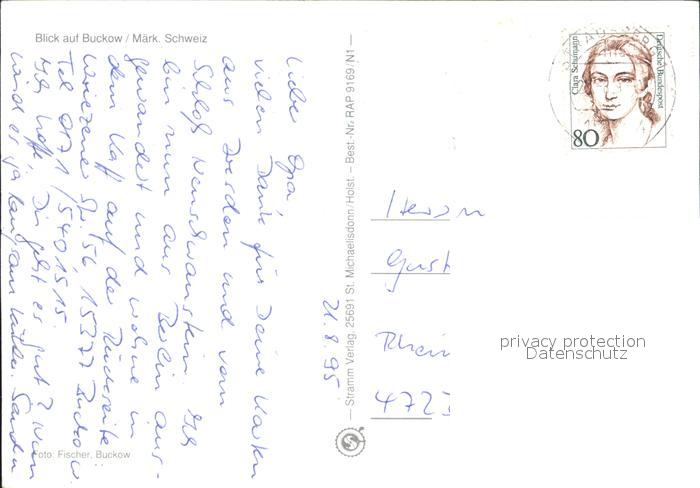 Blick auf Buckow / Märk. Schweiz
21.8.95
Liebe Opa,
vielen Dank für Deine Karten
aus Dresden und vom
Schloß Neuschwanstein. Ich
bin nun aus Berlin aus-
gewandert und wohne in
dem Kaff auf der Rückseite
Wriezener Str. 56, 15377 Buckow.
Tel 0171/5401515.
Ich hoffe, Dir geht es gut? Nun
wird es ja langsam kälter.
Foto: Fischer, Buckow
— Stramm Verlag, 25691 St. Michaelisdonn/Holst. – Best.-Nr. RAP 9169/N1 —
Clara Schumann
Deutsche Bundespost
80
Herrn
Gust
Rhein
472
privacy protection
Datenschutz